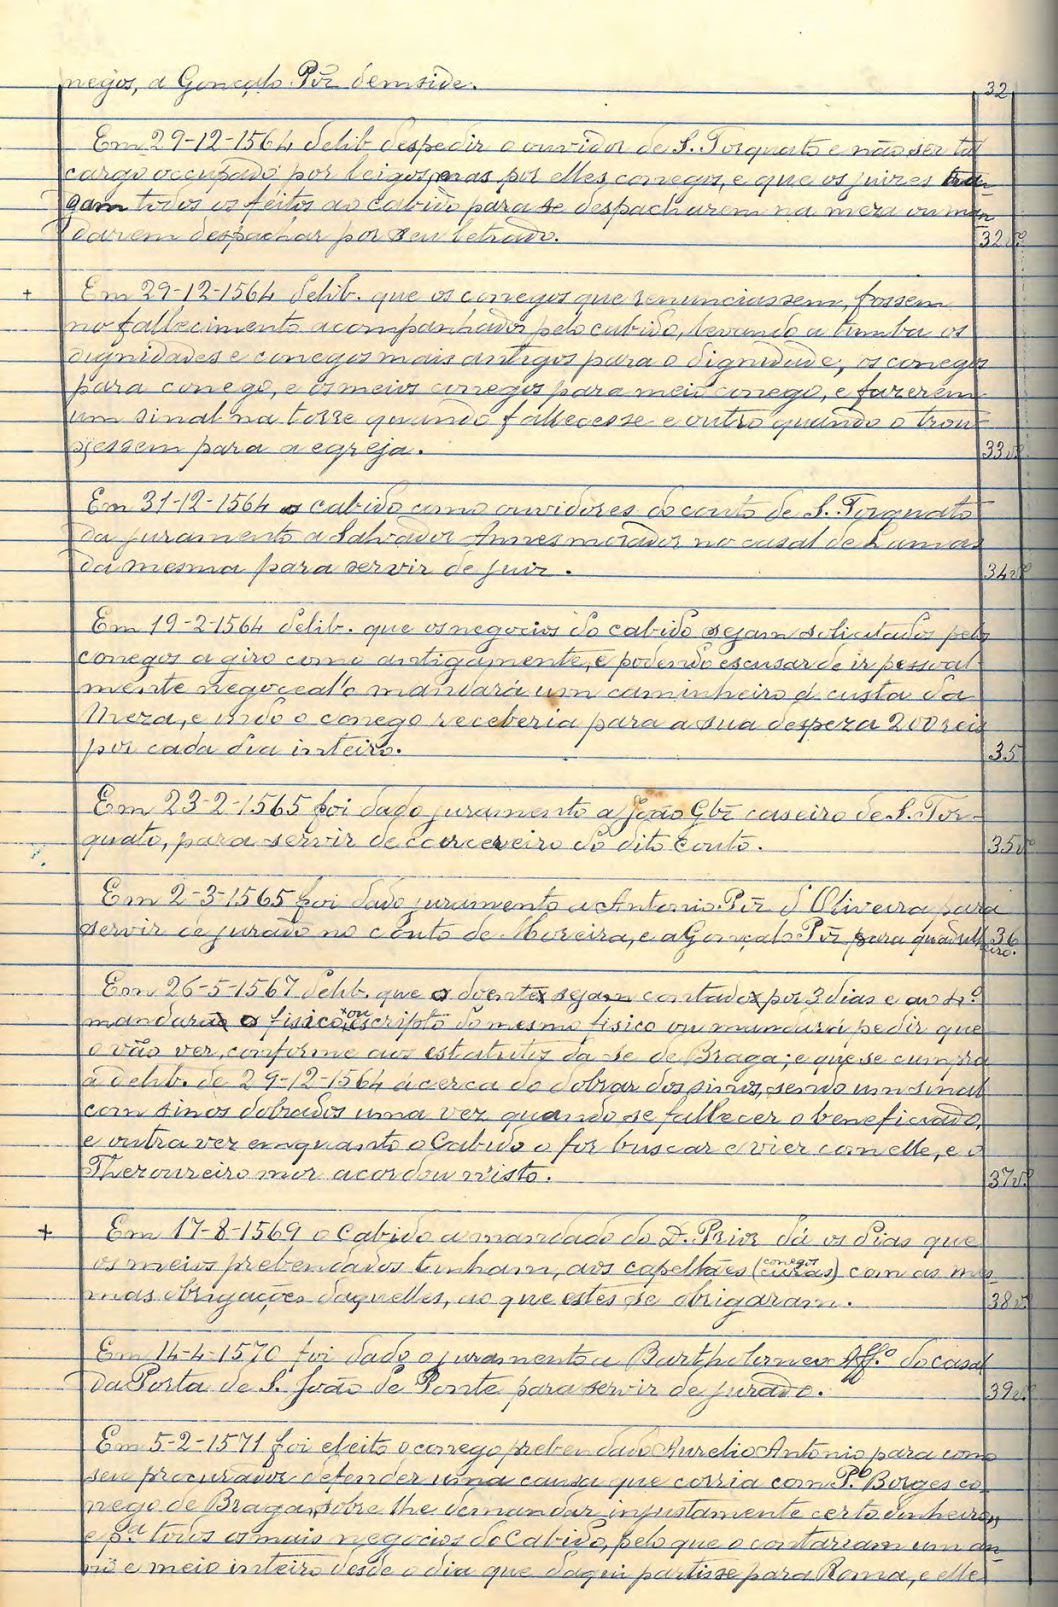 negos, a Gonçalo Pǒz demside. 32
Em 29-12-1564 delib. despedir o ouvidor de S. Torquato e não ser tal
cargo occupado por leigos, mas por elles conegos, e que os juizes tra-
gam todos os feitos ao cabido para se despacharem na meza ou man
darem despachar por seu letrado. 32vº
+ Em 29-12-1564 delib. que os conegos que renunciassem, fossem
no fallecimento acompanhados pelo cabido, levando a tumba os
dignidades e conegos mais antigos para o dignidade, os conegos
para conego, e os meios conegos para meio conego, e fazerem
um sinal na torre quando fallecesse e outro quando o trou-
xessem para a egreja. 33vº
Em 31-12-1564 o cabido como ouvidores do couto de S. Torquato
da juramento a Salvador Annes morador no casal de Lamas
da mesma para servir de juiz. 34vº
Em 19-2-1564 delib. que os negocios do cabido sejam solicitados pelos
conegos a giro como antigamente, e podendo escusar de ir pessoal-
mente negoceal'o mandará um caminheiro á custa da
Meza, e indo o conego receberia para a sua despeza 200 reis
por cada dia inteiro. 35
Em 23-2-1565 foi dado juramento a João Glz̃ caseiro de S. Tor-
quato, para servir de carcereiro do dito Couto. 35vº
Em 2-3-1565 foi dado juramento a Antonio Pĩz d'Oliveira para
servir de jurado no couto de Moreira, e a Gonçalo Pĩz para quadrilh 36
eiro.
Em 26-5-1567 delib. que o doente sejam contado por 3 dias e ao 4.º
mandará o fisico, ou escripto do mesmo fisico ou mandará pedir que
o vão ver, conforme aos estatutos da Se de Braga; e que se cumpra
a delib. de 29-12-1564 ácerca do dobrar dos sinos, sendo um sinal
com sinos dobrados uma vez quando se fallecer o beneficiado,
e outra vez emquanto o Cabido o for buscar e vier com elle, e o
Thezoureiro mor acordou n'isto. 37vº
+ Em 17-8-1569 o Cabido a mandado do D. Prior dá os dias que
os meios prebendados tinham, aos capellães (conegos curas) com as mes-
mas obrigações daquelles, ao que estes se obrigaram. 38vº
Em 14-4-1570 foi dado o juramento a Bartholomeu Aff.º do casal
da Porta de S. João de Ponte para servir de jurado. 39vº
Em 5-2-1571 foi eleito o conego prebendado Aurelio Antonio para como
seu procurador defender uma causa que corria com P.º Borges co-
nego de Braga, sobre lhe demandar injustamente certo dinheiro,
e p.ª todos os mais negocios do Cabido, pelo que o contariam um an-
no e meio inteiro desde o dia que daqui partisse para Roma, e elle